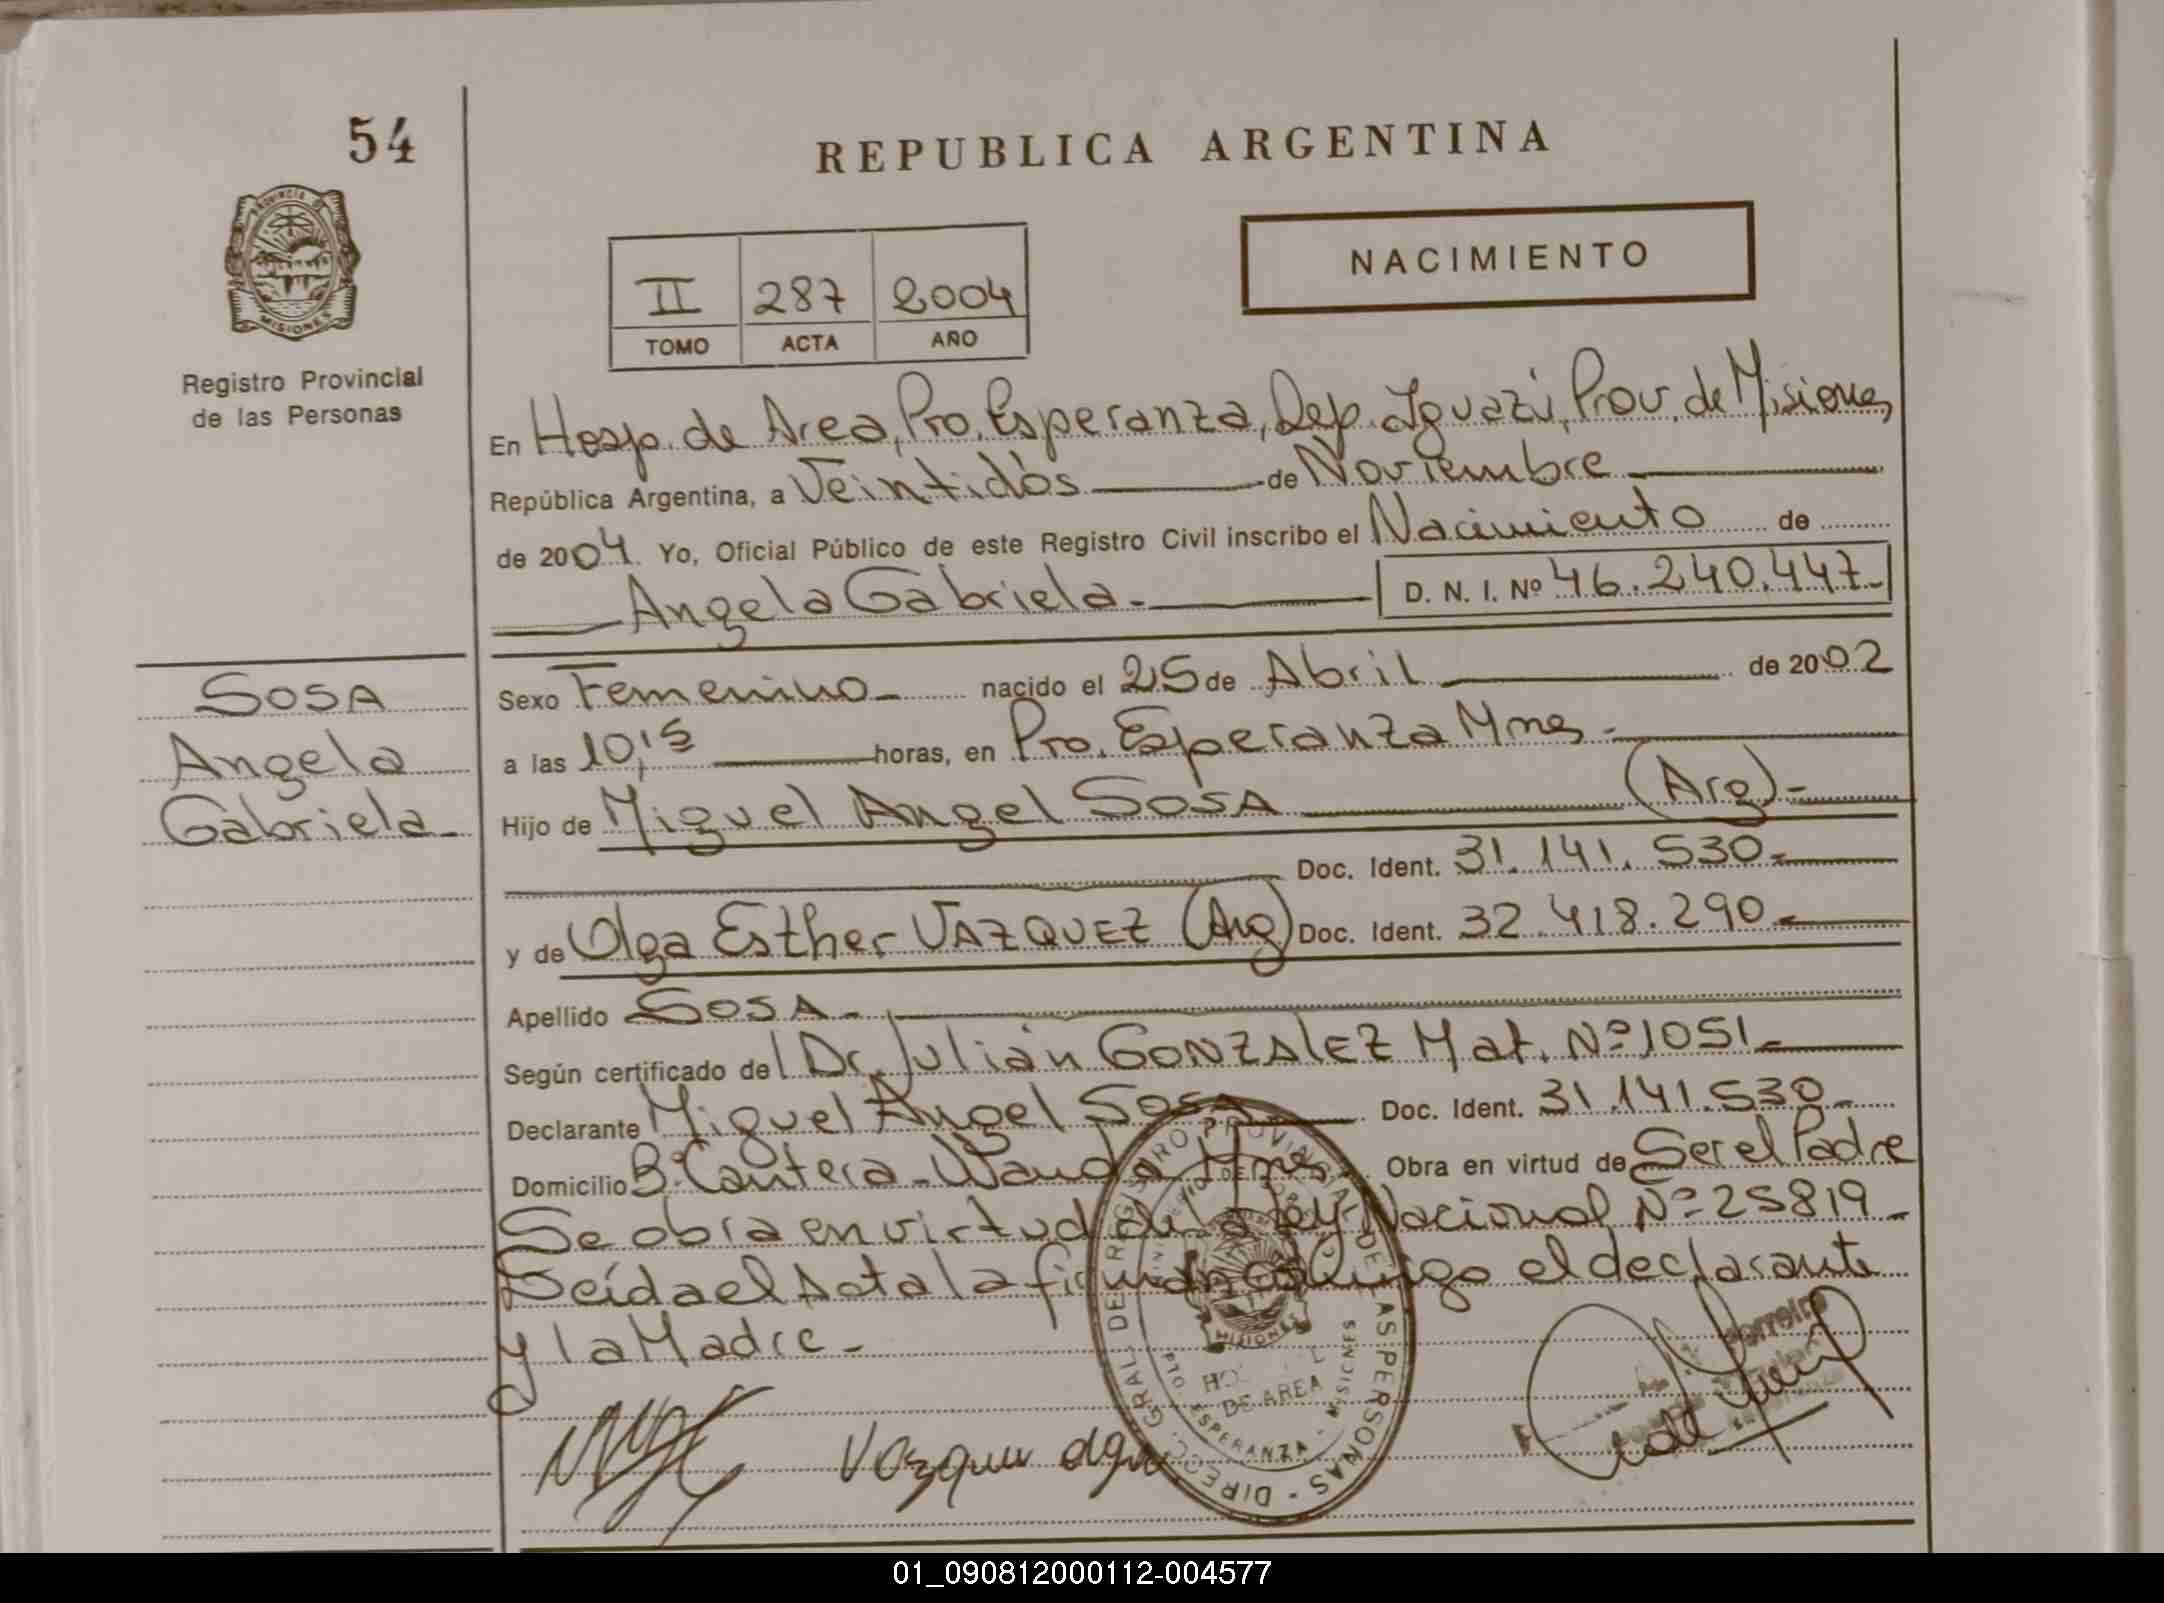 54
REPUBLICA ARGENTINA
PROVINCIA DE
MISIONES
Registro Provincial
de las Personas
NACIMIENTO
II 287 2004
TOMO ACTA AÑO
En Hosp. de Area, Pto. Esperanza, Dep. Iguazú, Prov. de Misiones,
República Argentina, a Veintidós de Noviembre
de 2004. Yo, Oficial Público de este Registro Civil inscribo el Nacimiento de
Angela Gabriela.- D. N. I. Nº 46.240.447-
SOSA
Angela
Gabriela-
Sexo Femenino- nacido el 25 de Abril de 2002
a las 10,15 horas, en Pto. Esperanza Mnes -
Hijo de Miguel Angel SOSA (Arg)-
Doc. Ident. 31.141.530-
y de Olga Esther VAZQUEZ (Arg) Doc. Ident. 32.418.290-
Apellido SOSA-
Según certificado del Dr. Julián GONZALEZ Mat. Nº 1051-
Declarante Miguel Angel SOSA Doc. Ident. 31.141.530-
Domicilio Bº Cantera - Wanda Mnes Obra en virtud de Ser el Padre
Se obra en virtud de la Ley Nacional Nº 25819-
Leída el Acta la firman conmigo el declarante
y la Madre-
DIRECC. GRAL. DE REGISTRO PROVINCIAL DE LAS PERSONAS
MISIONES
DE AREA
PTO. ESPERANZA - MISIONES
Vazquez olga
01_090812000112-004577